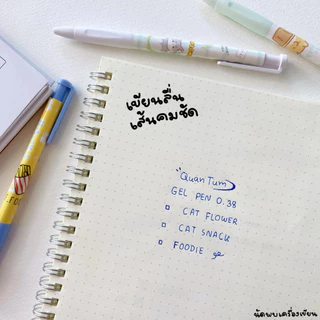 เขียนลื่น
เส้นคมชัด
"QuanTum
GEL PEN 0.38
CAT FLOWER
CAT SNACK
FOODIE
นัดพบเครื่องเขียน